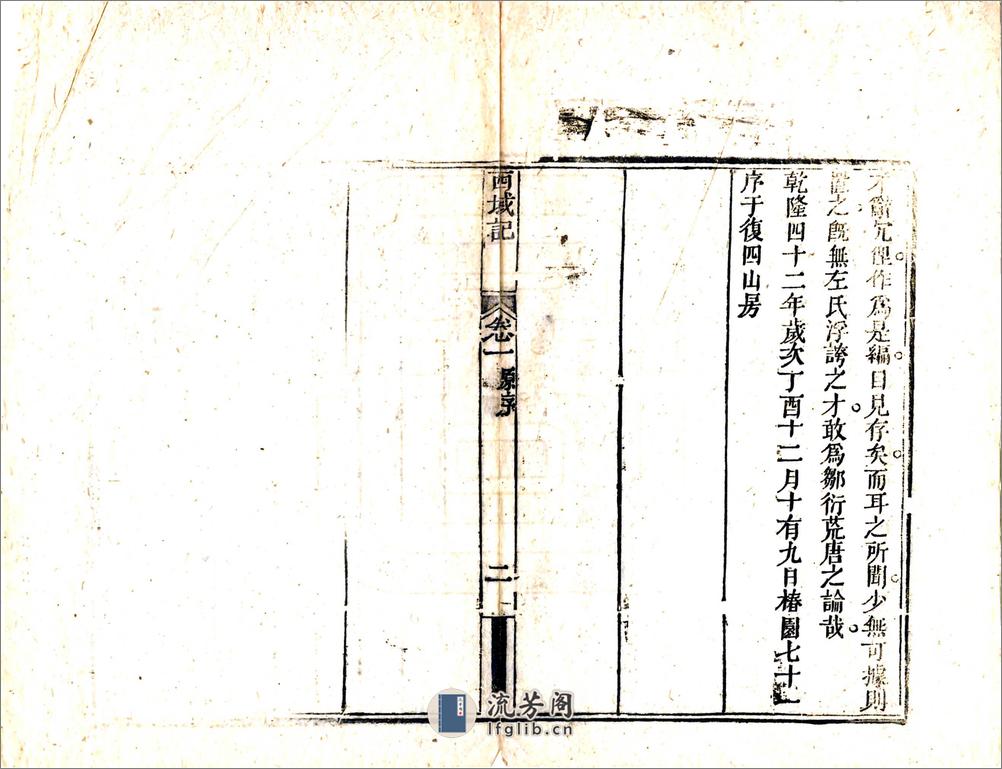 不辭冗俚作爲是編目見存矣而耳之所聞少無可據則
置之旣無左氏浮誇之才敢爲鄒衍荒唐之論哉
乾隆四十二年歲次丁酉十二月十有九日椿園七十一
序于復四山房
西域記
卷一
原序
二
流芳阁
lfglib.cn